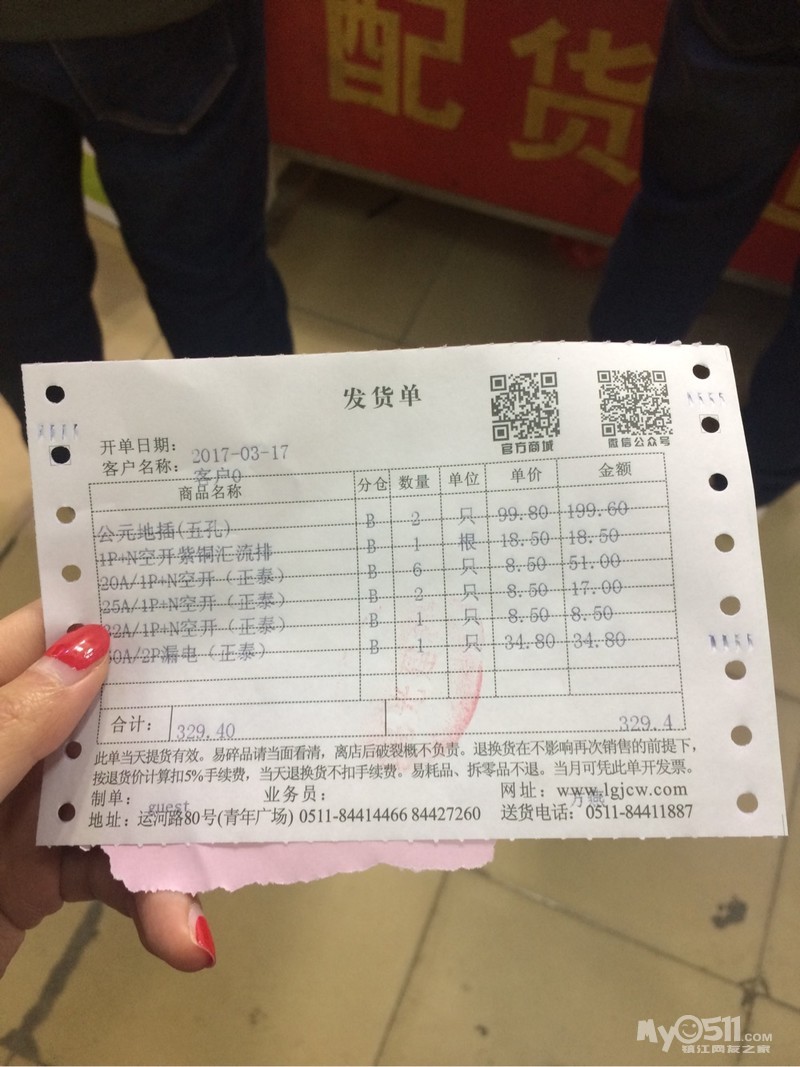 配货
发货单
官方商城
微信公众号
开单日期：2017-03-17
客户名称：客户0
商品名称 分仓 数量 单位 单价 金额
公元地插(五孔) B 2 只 99.80 199.60
1P+N空开紫铜汇流排 B 1 根 18.50 18.50
20A/1P+N空开（正泰） B 6 只 8.50 51.00
25A/1P+N空开（正泰） B 2 只 8.50 17.00
32A/1P+N空开（正泰） B 1 只 8.50 8.50
0A/2P漏电（正泰） B 1 只 34.80 34.80
合计： 329.40 329.4
此单当天提货有效。易碎品请当面看清，离店后破裂概不负责。退换货在不影响再次销售的前提下，
按退货价计算扣5%手续费，当天退换货不扣手续费。易耗品、拆零品不退。当月可凭此单开发票。
制单：guest 业务员：方 网址：www.lgjcw.com
地址：运河路80号(青年广场) 0511-84414466 84427260 送货电话：0511-84411887
My0511.COM
镇江网友之家